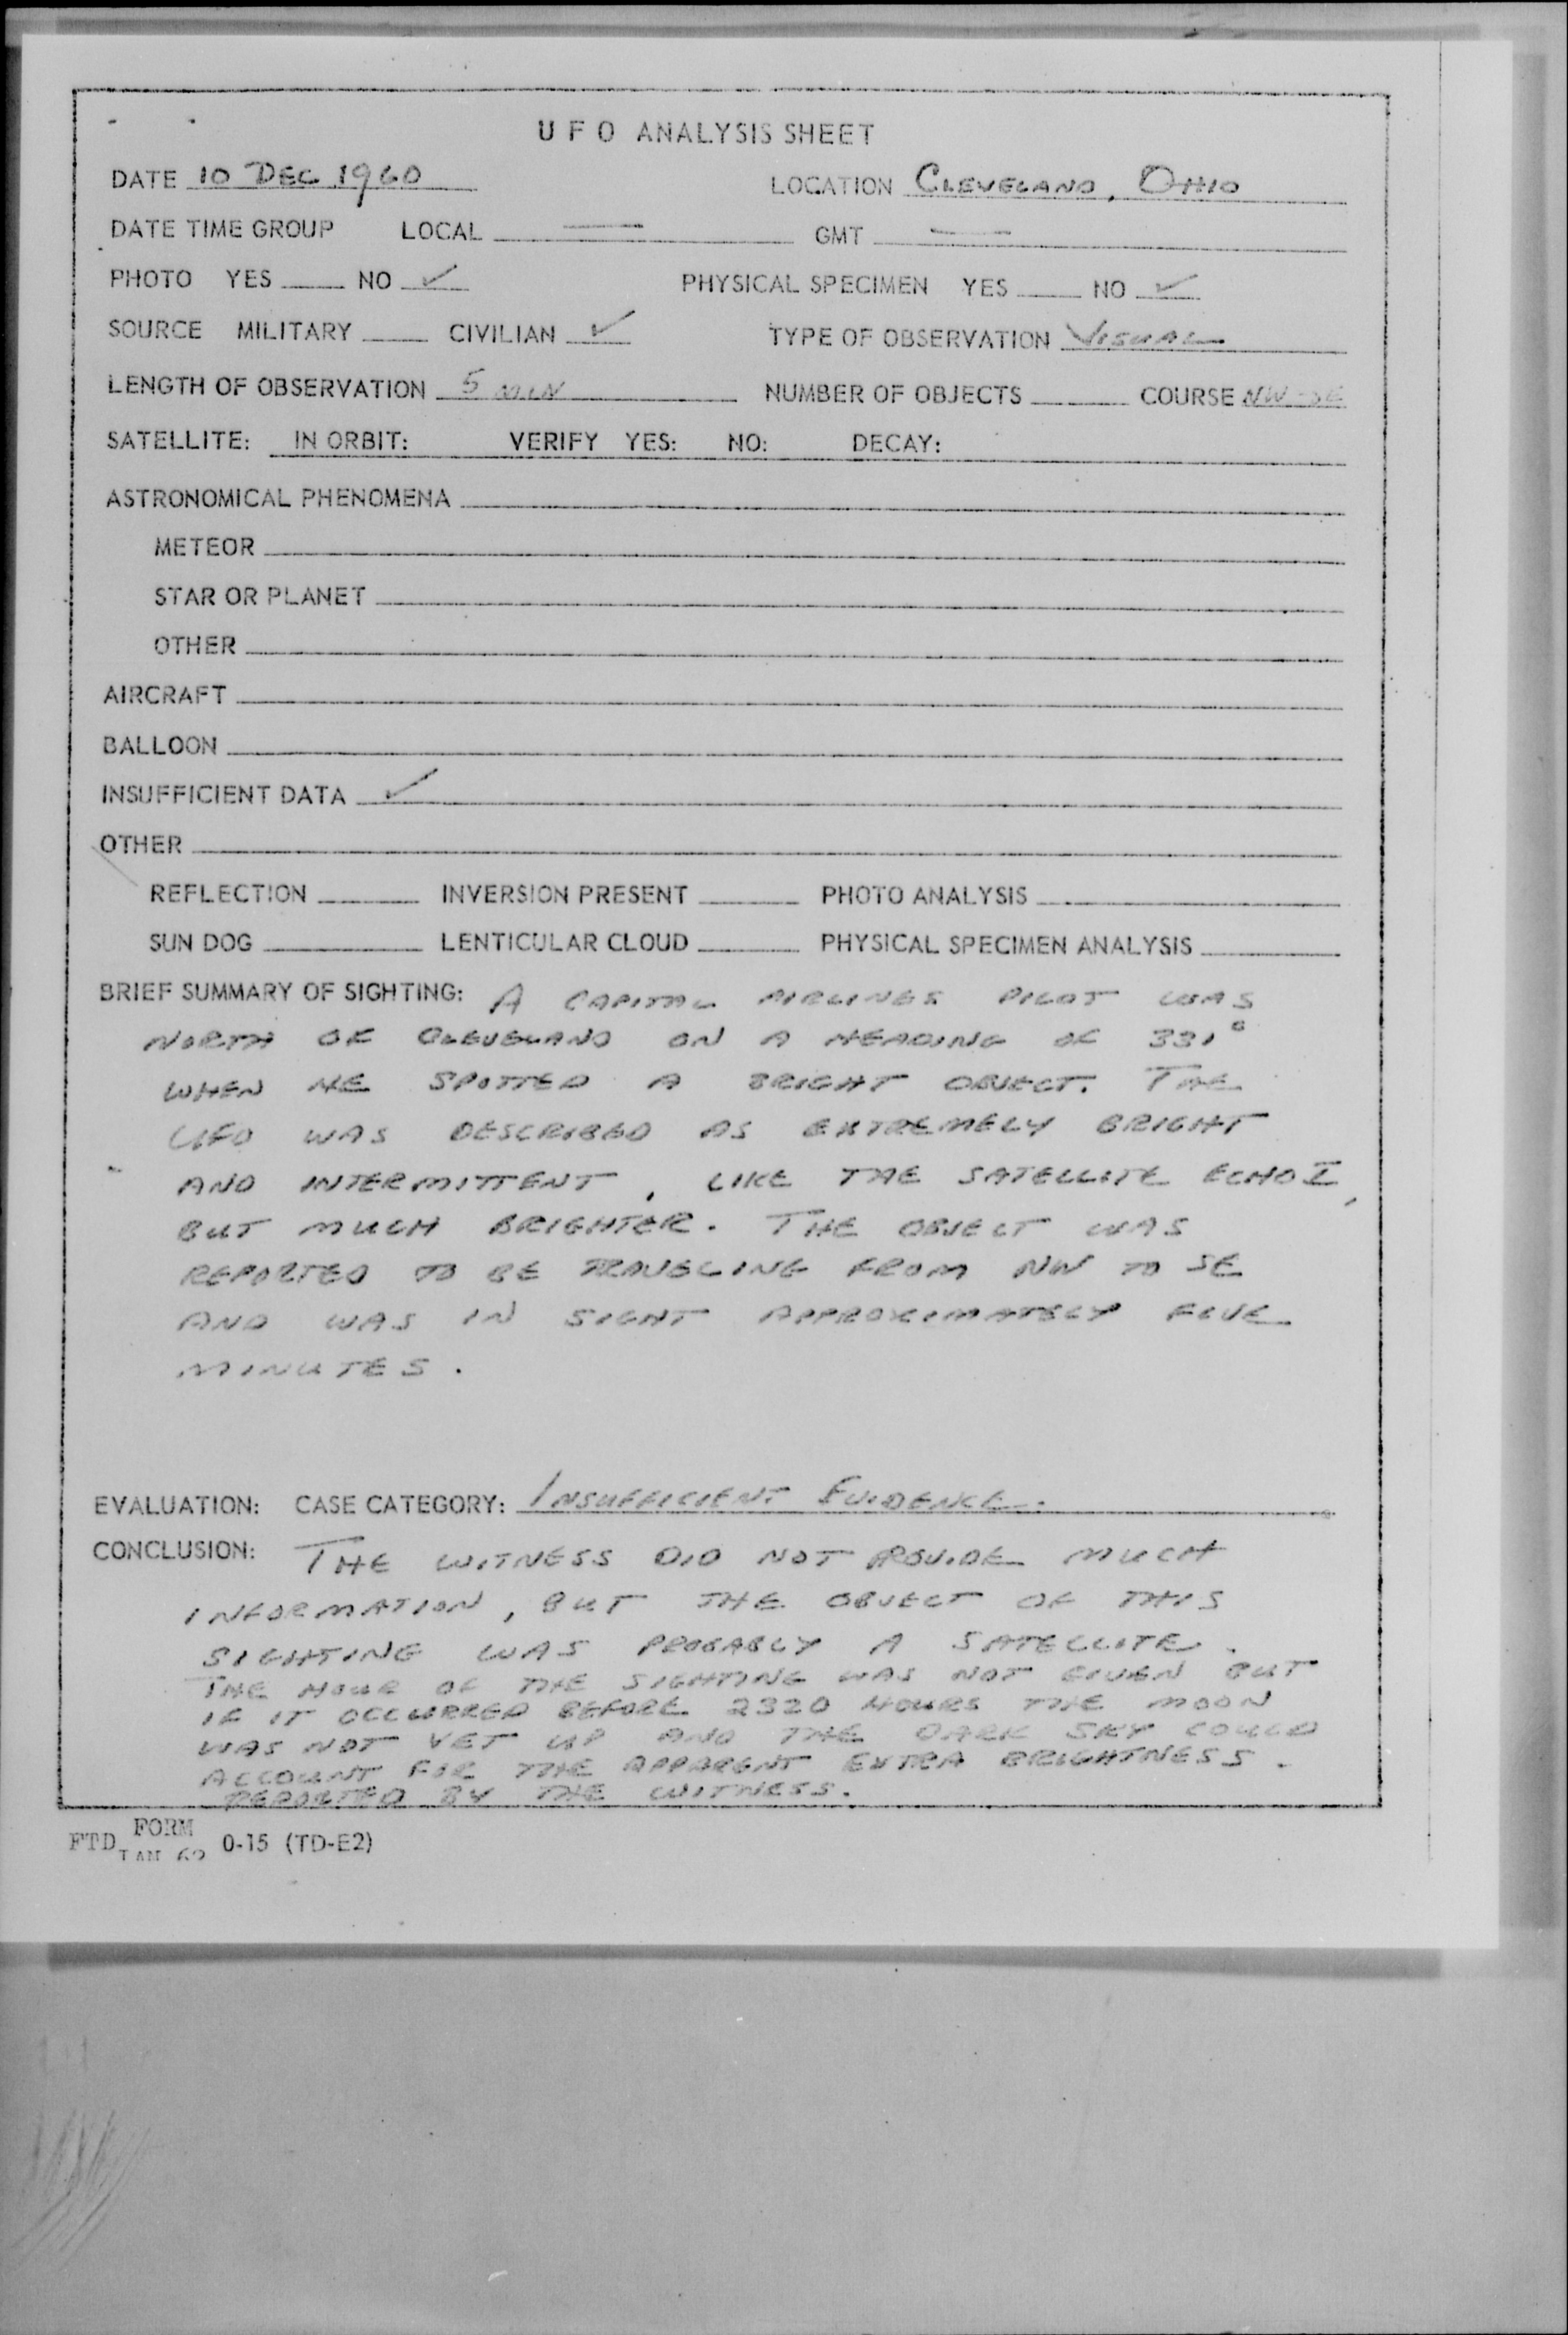 UFO ANALYSIS SHEET
DATE 10 DEC 1960 LOCATION CLEVELAND, OHIO
DATE TIME GROUP LOCAL — GMT —
PHOTO YES NO ✓ PHYSICAL SPECIMEN YES NO ✓
SOURCE MILITARY CIVILIAN ✓ TYPE OF OBSERVATION VISUAL
LENGTH OF OBSERVATION 5 MIN NUMBER OF OBJECTS COURSE NW-SE
SATELLITE: IN ORBIT: VERIFY YES: NO: DECAY:
ASTRONOMICAL PHENOMENA
METEOR
STAR OR PLANET
OTHER
AIRCRAFT
BALLOON
INSUFFICIENT DATA ✓
OTHER
REFLECTION INVERSION PRESENT PHOTO ANALYSIS
SUN DOG LENTICULAR CLOUD PHYSICAL SPECIMEN ANALYSIS
BRIEF SUMMARY OF SIGHTING: A CAPITAL AIRLINES PILOT WAS
NORTH OF CLEVELAND ON A HEADING OF 331°
WHEN HE SPOTTED A BRIGHT OBJECT. THE
UFO WAS DESCRIBED AS EXTREMELY BRIGHT
AND INTERMITTENT, LIKE THE SATELLITE ECHO I,
BUT MUCH BRIGHTER. THE OBJECT WAS
REPORTED TO BE TRAVELING FROM NW TO SE
AND WAS IN SIGHT APPROXIMATELY FIVE
MINUTES.
EVALUATION: CASE CATEGORY: INSUFFICIENT EVIDENCE.
CONCLUSION: THE WITNESS DID NOT PROVIDE MUCH
INFORMATION, BUT THE OBJECT OF THIS
SIGHTING WAS PROBABLY A SATELLITE.
THE HOUR OF THE SIGHTING WAS NOT GIVEN BUT
IF IT OCCURRED BEFORE 2320 HOURS THE MOON
WAS NOT YET UP AND THE DARK SKY COULD
ACCOUNT FOR THE APPARENT EXTRA BRIGHTNESS.
REPORTED BY THE WITNESS.
FTD FORM JAN 62 0-15 (TD-E2)